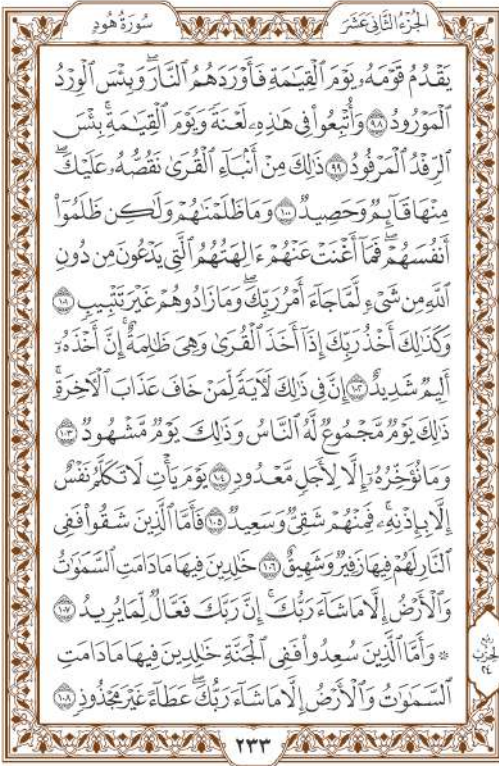 الجُزْءُ الثَّانِي عَشَرَ
سُورَةُ هُودٍ
يَقْدُمُ قَوْمَهُۥ يَوْمَ ٱلْقِيَٰمَةِ فَأَوْرَدَهُمُ ٱلنَّارَۖ وَبِئْسَ ٱلْوِرْدُ
ٱلْمَوْرُودُ ۝٩٨ وَأُتْبِعُوا۟ فِى هَٰذِهِۦ لَعْنَةً وَيَوْمَ ٱلْقِيَٰمَةِۚ بِئْسَ
ٱلرِّفْدُ ٱلْمَرْفُودُ ۝٩٩ ذَٰلِكَ مِنْ أَنۢبَآءِ ٱلْقُرَىٰ نَقُصُّهُۥ عَلَيْكَۖ
مِنْهَا قَآئِمٌ وَحَصِيدٌ ۝١٠٠ وَمَا ظَلَمْنَٰهُمْ وَلَٰكِن ظَلَمُوٓا۟
أَنفُسَهُمْۖ فَمَآ أَغْنَتْ عَنْهُمْ ءَالِهَتُهُمُ ٱلَّتِى يَدْعُونَ مِن دُونِ
ٱللَّهِ مِن شَىْءٍ لَّمَّا جَآءَ أَمْرُ رَبِّكَۖ وَمَا زَادُوهُمْ غَيْرَ تَتْبِيبٍ ۝١٠١
وَكَذَٰلِكَ أَخْذُ رَبِّكَ إِذَآ أَخَذَ ٱلْقُرَىٰ وَهِىَ ظَٰلِمَةٌۚ إِنَّ أَخْذَهُۥٓ
أَلِيمٌ شَدِيدٌ ۝١٠٢ إِنَّ فِى ذَٰلِكَ لَءَايَةً لِّمَنْ خَافَ عَذَابَ ٱلْءَاخِرَةِۚ
ذَٰلِكَ يَوْمٌ مَّجْمُوعٌ لَّهُ ٱلنَّاسُ وَذَٰلِكَ يَوْمٌ مَّشْهُودٌ ۝١٠٣
وَمَا نُؤَخِّرُهُۥٓ إِلَّا لِأَجَلٍ مَّعْدُودٍ ۝١٠٤ يَوْمَ يَأْتِ لَا تَكَلَّمُ نَفْسٌ
إِلَّا بِإِذْنِهِۦۚ فَمِنْهُمْ شَقِىٌّ وَسَعِيدٌ ۝١٠٥ فَأَمَّا ٱلَّذِينَ شَقُوا۟ فَفِى
ٱلنَّارِ لَهُمْ فِيهَا زَفِيرٌ وَشَهِيقٌ ۝١٠٦ خَٰلِدِينَ فِيهَا مَا دَامَتِ ٱلسَّمَٰوَٰتُ
وَٱلْأَرْضُ إِلَّا مَا شَآءَ رَبُّكَۚ إِنَّ رَبَّكَ فَعَّالٌ لِّمَا يُرِيدُ ۝١٠٧
۞ وَأَمَّا ٱلَّذِينَ سُعِدُوا۟ فَفِى ٱلْجَنَّةِ خَٰلِدِينَ فِيهَا مَا دَامَتِ
ٱلسَّمَٰوَٰتُ وَٱلْأَرْضُ إِلَّا مَا شَآءَ رَبُّكَۖ عَطَآءً غَيْرَ مَجْذُوذٍ ۝١٠٨
ربع
الحزب
٢٤
٢٣٣